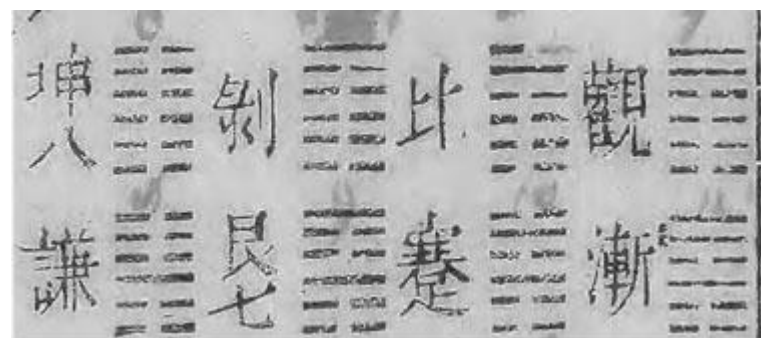 坤八 剝 比 觀
謙 艮七 蹇 漸